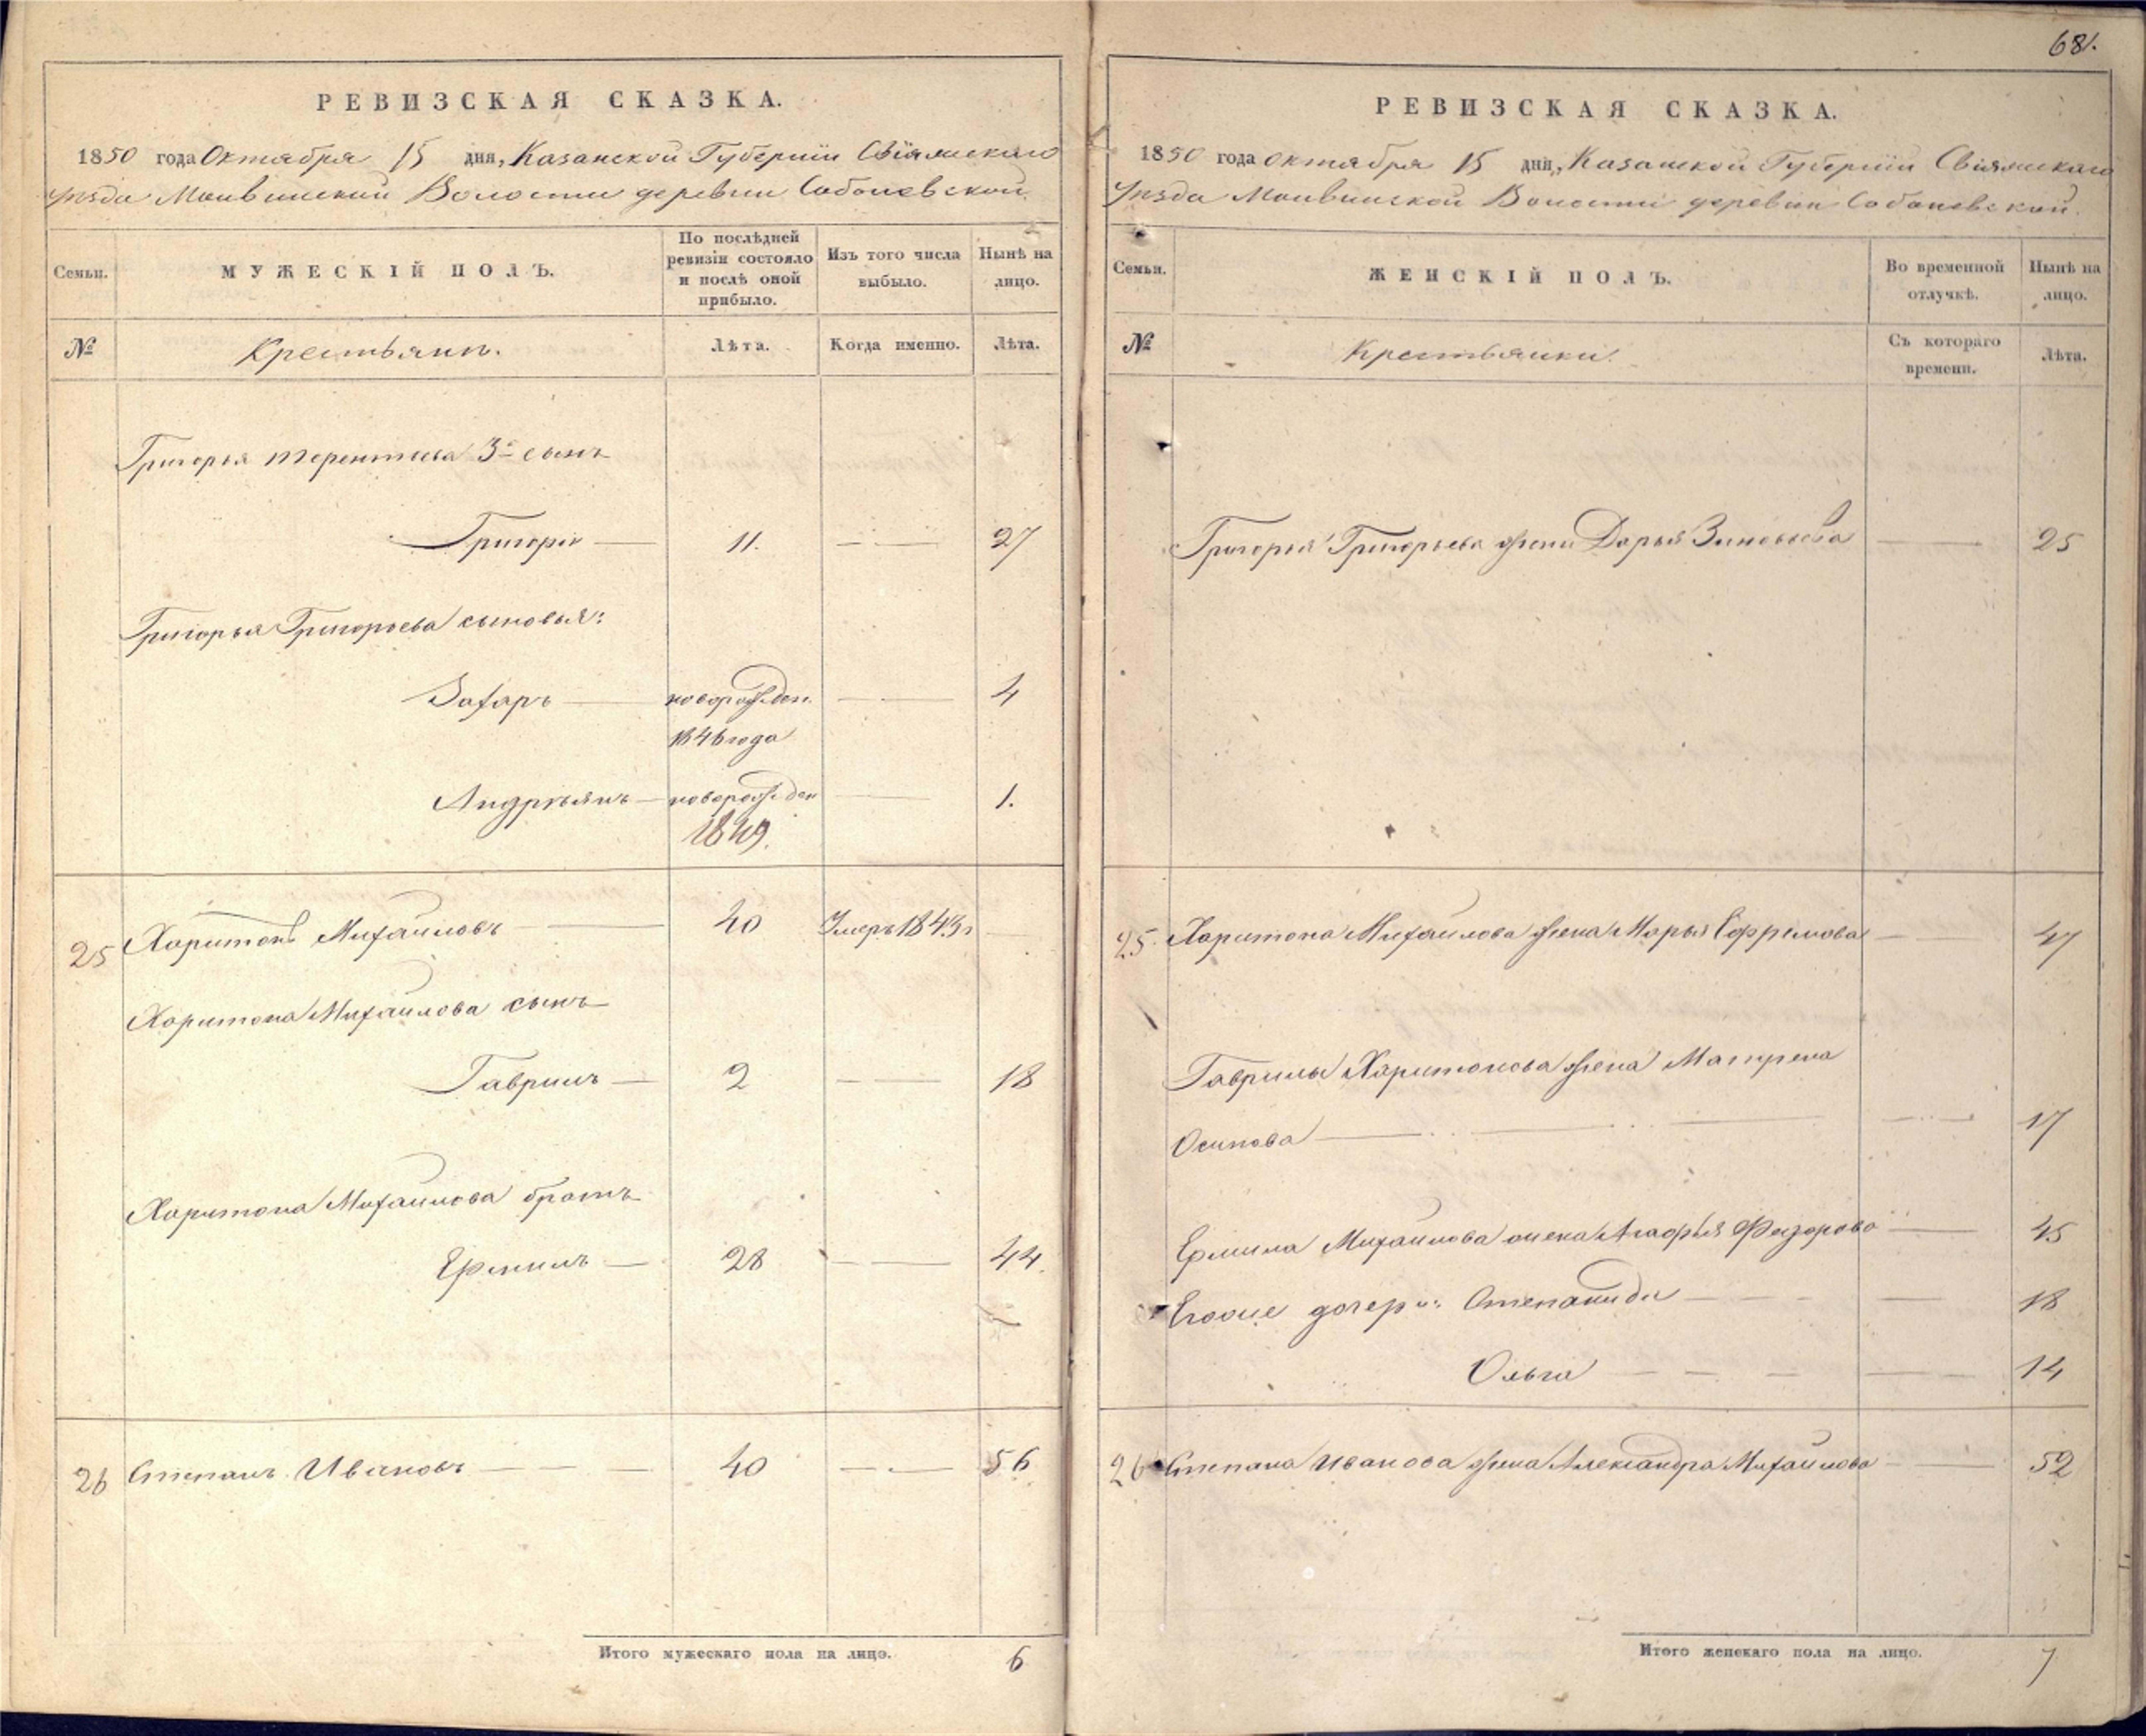 РЕВИЗСКАЯ СКАЗКА.
1850 года Октября 15 дня, Казанской Губернии Свіяжскаго
Уѣзда Волости деревни Соболевской
Семьи.
МУЖЕСКІЙ ПОЛЪ.
По послѣдней ревизіи состояло и послѣ оной прибыло.
Изъ того числа выбыло.
Нынѣ на лицо.
№
Крестьяне.
Лѣта.
Когда именно.
Лѣта.
Григорья Терентьева 3й сынъ
Григорій 11. 27
Григорья Григорьева сыновья:
Захаръ новорожден. 4
1846 года
Андреянъ новорожден 1.
1849.
25 Харитонъ Михайловъ 40 Умеръ 1843г
Харитона Михайлова сынъ
Гаврилъ 2 18
Харитона Михайлова братъ
Ермилъ 28 44.
26 Степанъ Ивановъ 40 56
Итого мужескаго пола на лицо. 6
681.
РЕВИЗСКАЯ СКАЗКА.
1850 года Октября 15 дня, Казанской Губерніи Свіяжскаго
Уѣзда Волости деревни Соболевской.
Семьи.
ЖЕНСКІЙ ПОЛЪ.
Во временной отлучкѣ.
Нынѣ на лицо.
№
Крестьянки.
Съ котораго времени.
Лѣта.
Григорья Григорьева жена Дарья Зиновьева 25
25. Харитона Михайлова жена Марья Ефремова 47
Гаврилы Харитонова жена Матрена
Осипова 17
Ермила Михайлова жена Агафья Федорова 45
дочери: Степанида 18
Ольга 14
26 Степана Иванова жена Александра Михайлова 52
Итого женскаго пола на лицо. 7